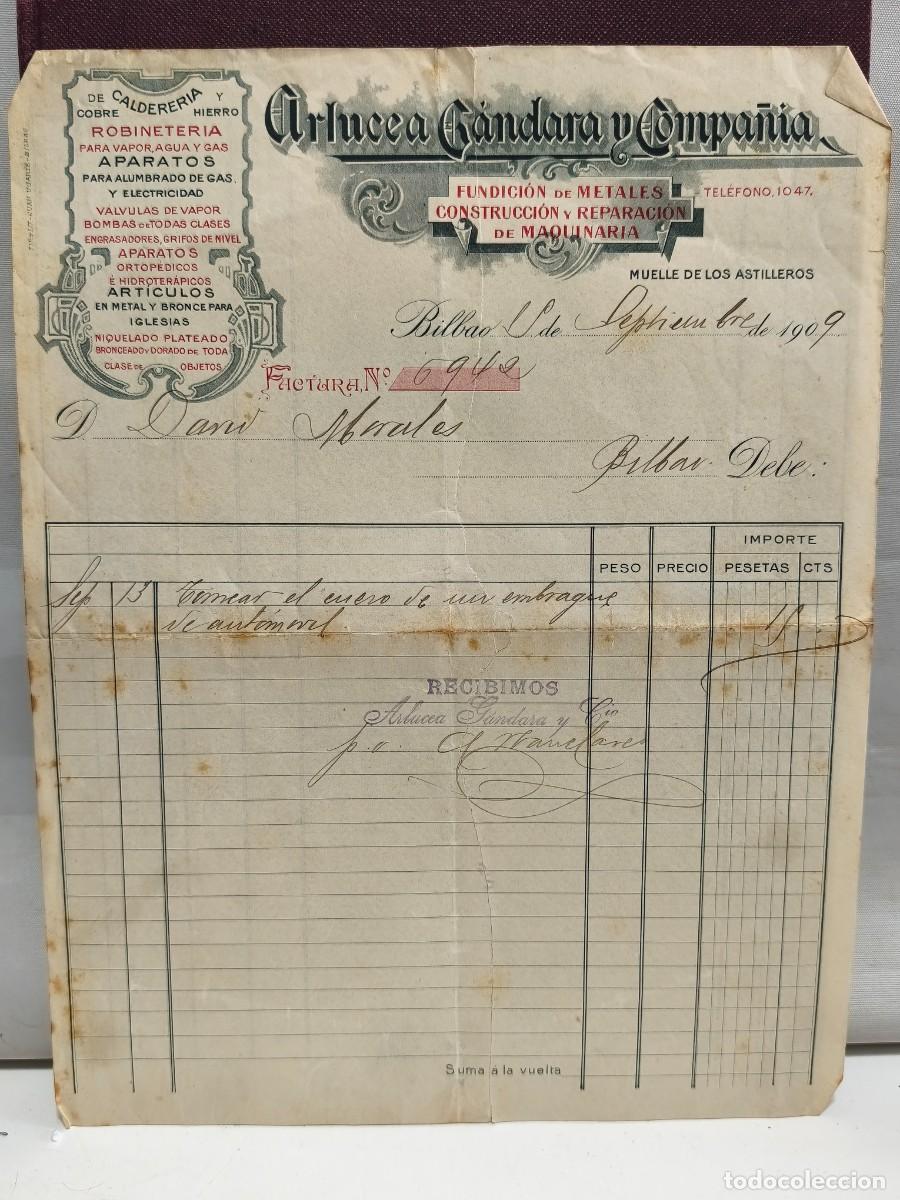 DE CALDERERIA Y
COBRE HIERRO
ROBINETERIA
PARA VAPOR, AGUA Y GAS
APARATOS
PARA ALUMBRADO DE GAS,
Y ELECTRICIDAD
VÁLVULAS DE VAPOR
BOMBAS DE TODAS CLASES
ENGRASADORES, GRIFOS DE NIVEL
APARATOS
ORTOPÉDICOS
É HIDROTERÁPICOS
ARTÍCULOS
EN METAL Y BRONCE PARA
IGLESIAS
NIQUELADO PLATEADO
BRONCEADO Y DORADO DE TODA
CLASE DE OBJETOS
Arlucea Gándara y Compañia
FUNDICIÓN DE METALES
CONSTRUCCIÓN Y REPARACIÓN
DE MAQUINARIA
TELÉFONO, 1047.
MUELLE DE LOS ASTILLEROS
Bilbao 15 de Septiembre de 1909
FACTURA, Nº 6942
D. David Morales
Bilbao Debe:
IMPORTE
PESO PRECIO PESETAS CTS
Sep 13 Tornear el cuero de un embrague
de automovil. 15
RECIBIMOS
Arlucea Gándara y Cía
p. o.
Suma á la vuelta
todocoleccion